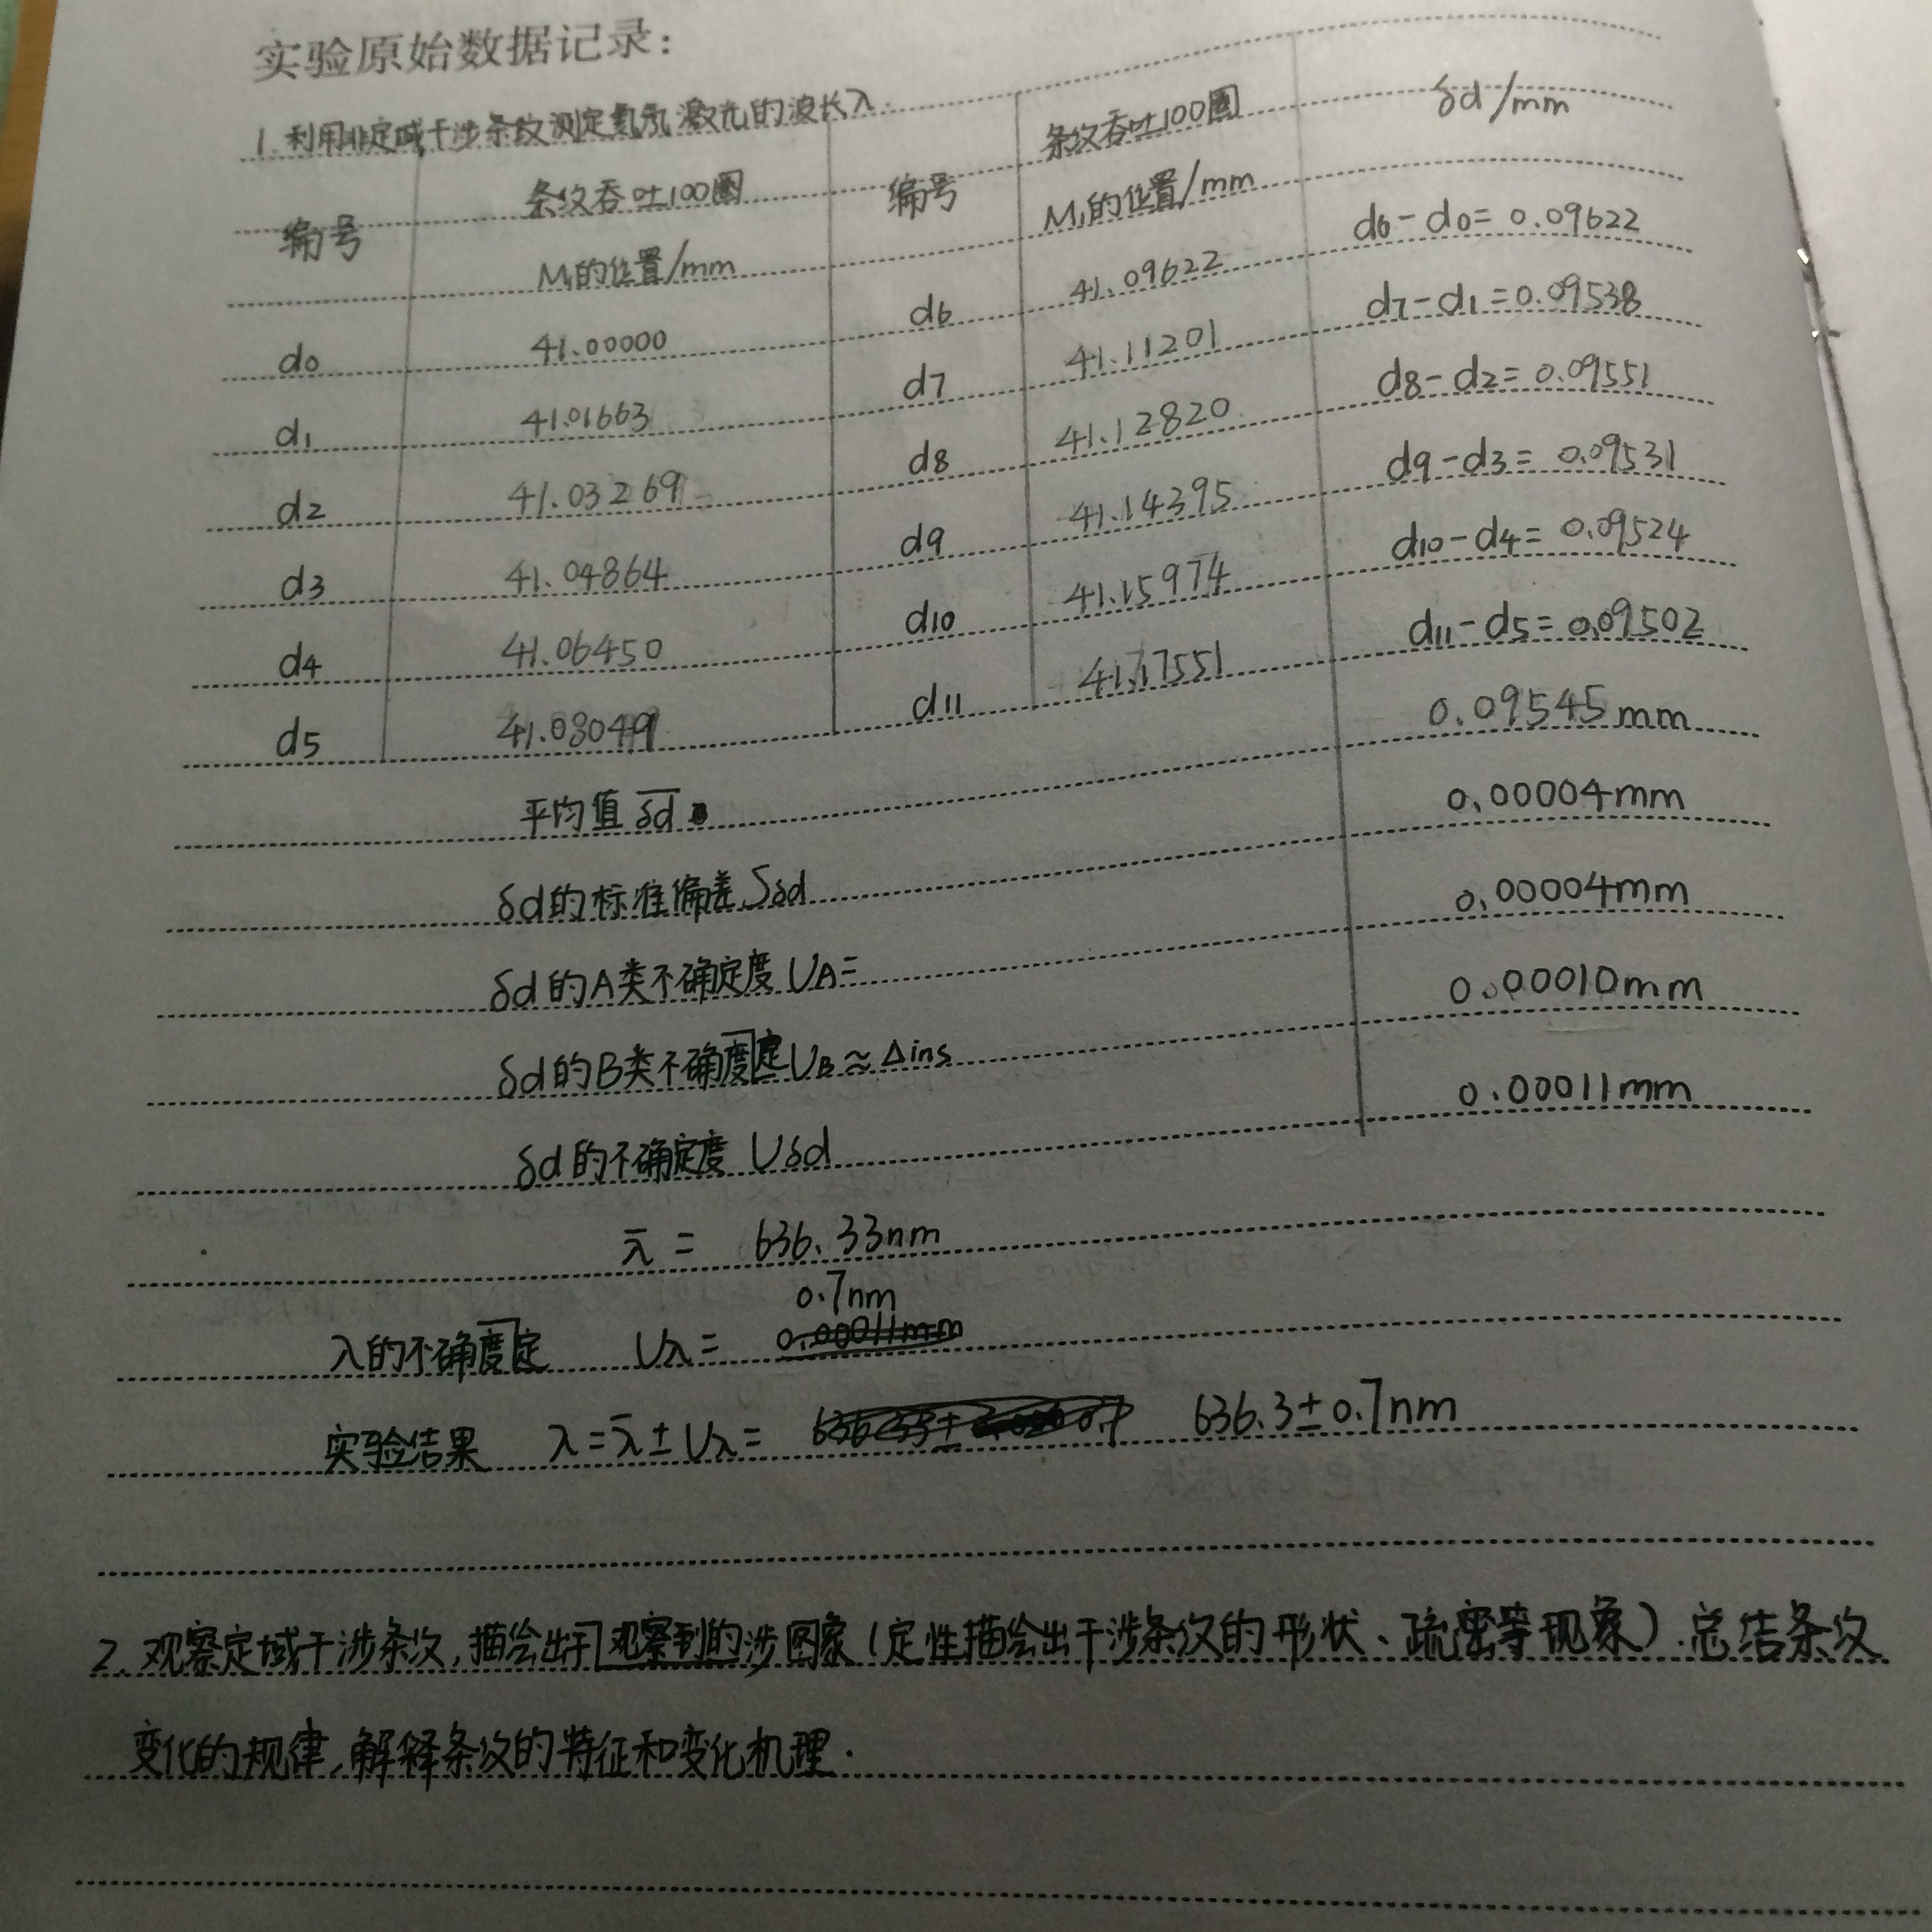 实验原始数据记录：
1.利用非定域干涉条纹测定氦氖激光的波长λ.
编号 条纹吞吐100圈 M₁的位置/mm 编号 条纹吞吐100圈 M₁的位置/mm δd/mm
d0 41.00000 d6 41.09622 d6-d0=0.09622
d1 41.01663 d7 41.11201 d7-d1=0.09538
d2 41.03269 d8 41.12820 d8-d2=0.09551
d3 41.04864 d9 41.14395 d9-d3=0.09531
d4 41.06450 d10 41.15974 d10-d4=0.09524
d5 41.08049 d11 41.17551 d11-d5=0.09502
平均值 δd̅ 0.09545mm
δd的标准偏差Sδd 0.00004mm
δd的A类不确定度 UA= 0.00004mm
δd的B类不确度定UB≈Δins 0.00010mm
δd的不确定度 Uδd 0.00011mm
λ̅ = 636.33nm
0.7nm
λ的不确度定 Uλ= 0.00011mm
实验结果 λ=λ̅±Uλ= 636.3±0.7nm
2.观察定域干涉条纹,描绘出干观察到的涉图象(定性描绘出干涉条纹的形状、疏密等现象).总结条纹
变化的规律,解释条纹的特征和变化机理.